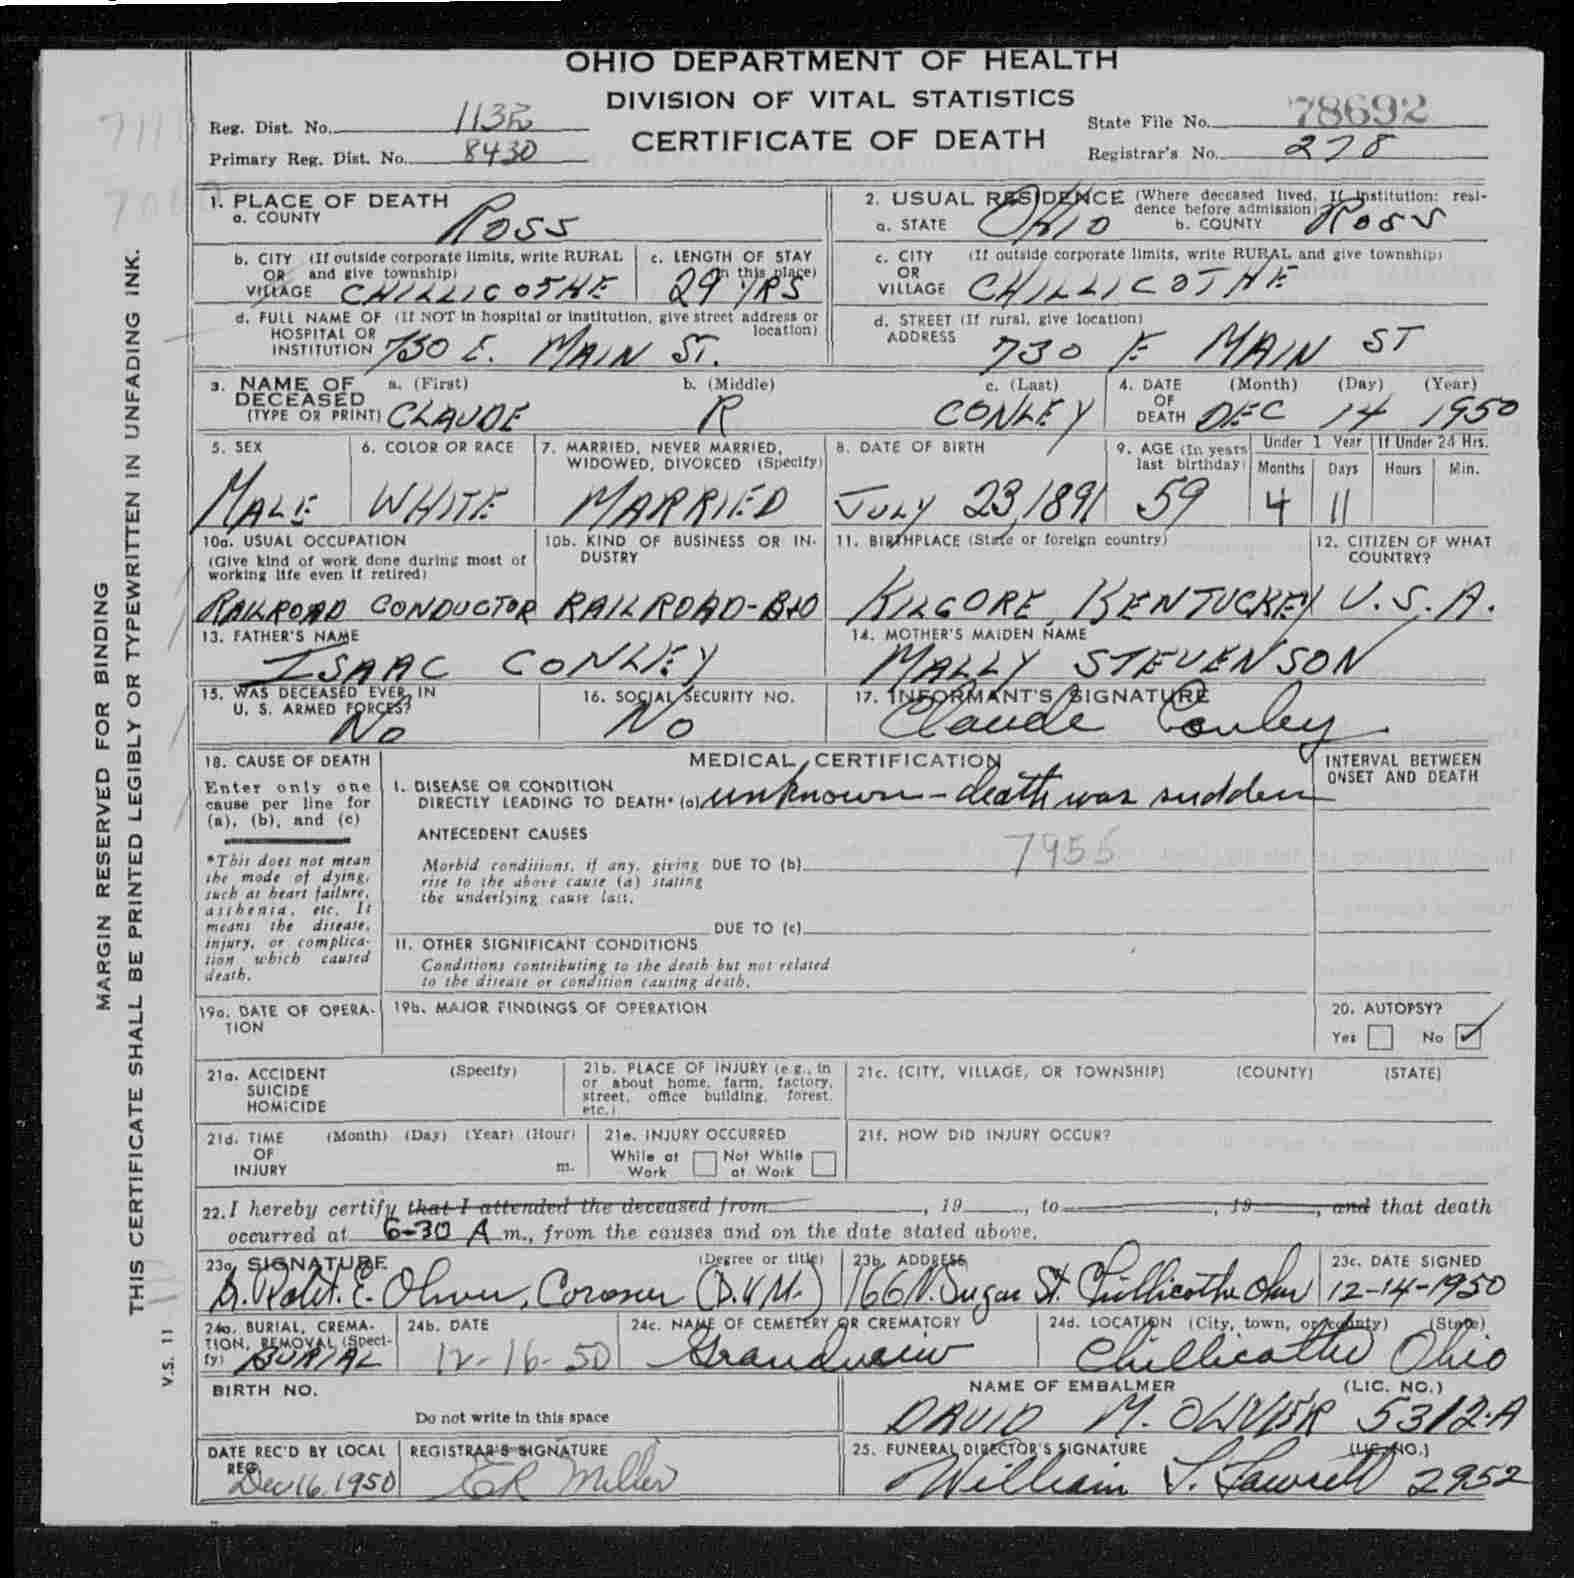 OHIO DEPARTMENT OF HEALTH
DIVISION OF VITAL STATISTICS
CERTIFICATE OF DEATH
Reg. Dist. No.
Primary Reg. Dist. No. 8430
State File No. 78692
Registrar's No. 278
1. PLACE OF DEATH
a. COUNTY ROSS
2. USUAL RESIDENCE (Where deceased lived. If institution: resi-
dence before admission)
a. STATE OHIO b. COUNTY ROSS
b. CITY (If outside corporate limits, write RURAL
OR and give township)
VILLAGE CHILLICOTHE
c. LENGTH OF STAY
(in this place)
29 YRS
c. CITY (If outside corporate limits, write RURAL and give township)
OR
VILLAGE CHILLICOTHE
d. FULL NAME OF (If NOT in hospital or institution, give street address or
location)
HOSPITAL OR
INSTITUTION 730 E. MAIN ST.
d. STREET (If rural, give location)
ADDRESS 730 E MAIN ST
3. NAME OF
DECEASED
(TYPE OR PRINT)
a. (First) b. (Middle) c. (Last)
CLAUDE R CONLEY
4. DATE (Month) (Day) (Year)
OF
DEATH DEC 14 1950
5. SEX
MALE
6. COLOR OR RACE
WHITE
7. MARRIED, NEVER MARRIED,
WIDOWED, DIVORCED (Specify)
MARRIED
8. DATE OF BIRTH
JULY 23, 1891
9. AGE (In years
last birthday)
59
Under 1 Year If Under 24 Hrs.
Months Days Hours Min.
4 11
10a. USUAL OCCUPATION
(Give kind of work done during most of
working life even if retired)
RAILROAD CONDUCTOR
10b. KIND OF BUSINESS OR IN-
DUSTRY
RAILROAD-B&O
11. BIRTHPLACE (State or foreign country)
KILGORE, KENTUCKEY
12. CITIZEN OF WHAT
COUNTRY?
U.S.A.
13. FATHER'S NAME
ISAAC CONLEY
14. MOTHER'S MAIDEN NAME
MALLY STEVENSON
15. WAS DECEASED EVER IN
U. S. ARMED FORCES?
No
16. SOCIAL SECURITY NO.
No
17. INFORMANT'S SIGNATURE
Claude Conley
18. CAUSE OF DEATH
Enter only one
cause per line for
(a), (b), and (c)
*This does not mean
the mode of dying,
such as heart failure,
asthenia, etc. It
means the disease,
injury, or complica-
tion which caused
death.
MEDICAL CERTIFICATION
INTERVAL BETWEEN
ONSET AND DEATH
I. DISEASE OR CONDITION
DIRECTLY LEADING TO DEATH* (a) unknown - death was sudden
ANTECEDENT CAUSES
7955
Morbid conditions, if any, giving DUE TO (b)
rise to the above cause (a) stating
the underlying cause last.
DUE TO (c)
II. OTHER SIGNIFICANT CONDITIONS
Conditions contributing to the death but not related
to the disease or condition causing death.
19a. DATE OF OPERA-
TION
19b. MAJOR FINDINGS OF OPERATION
20. AUTOPSY?
Yes No ✓
21a. ACCIDENT (Specify)
SUICIDE
HOMICIDE
21b. PLACE OF INJURY (e.g., in
or about home, farm, factory,
street, office building, forest,
etc.)
21c. (CITY, VILLAGE, OR TOWNSHIP) (COUNTY) (STATE)
21d. TIME (Month) (Day) (Year) (Hour)
OF
INJURY m.
21e. INJURY OCCURRED
While at Not While
Work at Work
21f. HOW DID INJURY OCCUR?
22. I hereby certify that I attended the deceased from , 19 , to , 19 , and that death
occurred at 6-30 A m., from the causes and on the date stated above.
23a. SIGNATURE (Degree or title)
Dr. Robt. E. Oliver, Coroner (D.V.M.)
23b. ADDRESS
166 N. Sugar St. Chillicothe Ohio
23c. DATE SIGNED
12-14-1950
24a. BURIAL, CREMA-
TION, REMOVAL (Speci-
fy) BURIAL
24b. DATE
12-16-50
24c. NAME OF CEMETERY OR CREMATORY
Grandview
24d. LOCATION (City, town, or county) (State)
Chillicothe Ohio
BIRTH NO.
Do not write in this space
NAME OF EMBALMER (LIC. NO.)
DAVID M. OLIVER 5312-A
DATE REC'D BY LOCAL
REG.
Dec 16, 1950
REGISTRAR'S SIGNATURE
ER Miller
25. FUNERAL DIRECTOR'S SIGNATURE (LIC. NO.)
William 2952
MARGIN RESERVED FOR BINDING
THIS CERTIFICATE SHALL BE PRINTED LEGIBLY OR TYPEWRITTEN IN UNFADING INK.
V.S. 11